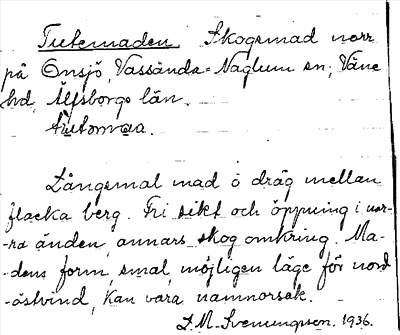 Tutemaden. Skogsmad norr
på Onsjö, Vassända-Naglum sn; Väne
hd, Älfsborgs län.
Långsmal mad o dräg mellan
flacka berg. Fri sikt och öppning i nor-
-ra änden, annars skog omkring. Ma-
-dens form, smal, möjligen läge för nord
-ostvind, kan vara namnorsak.
L. M. Svenungsson. 1936.